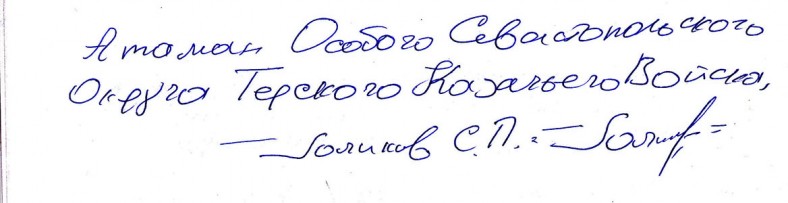 Атаман Особого Севастопольского
Округа Терского Казачьего Войска,
— Голиков С.П. =